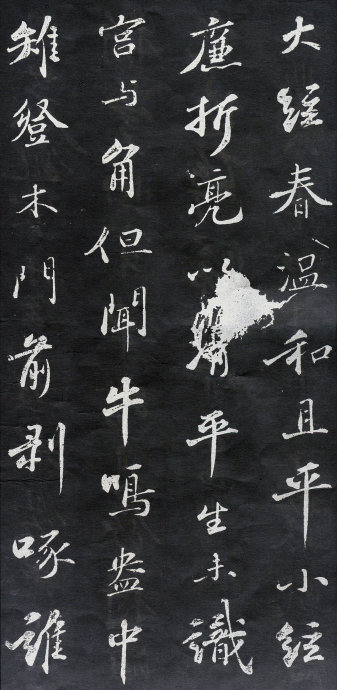 大絃春温和且平小絃
廉折亮以清平生未識
宮与角但聞牛鳴盎中
雉登木門前剥啄誰